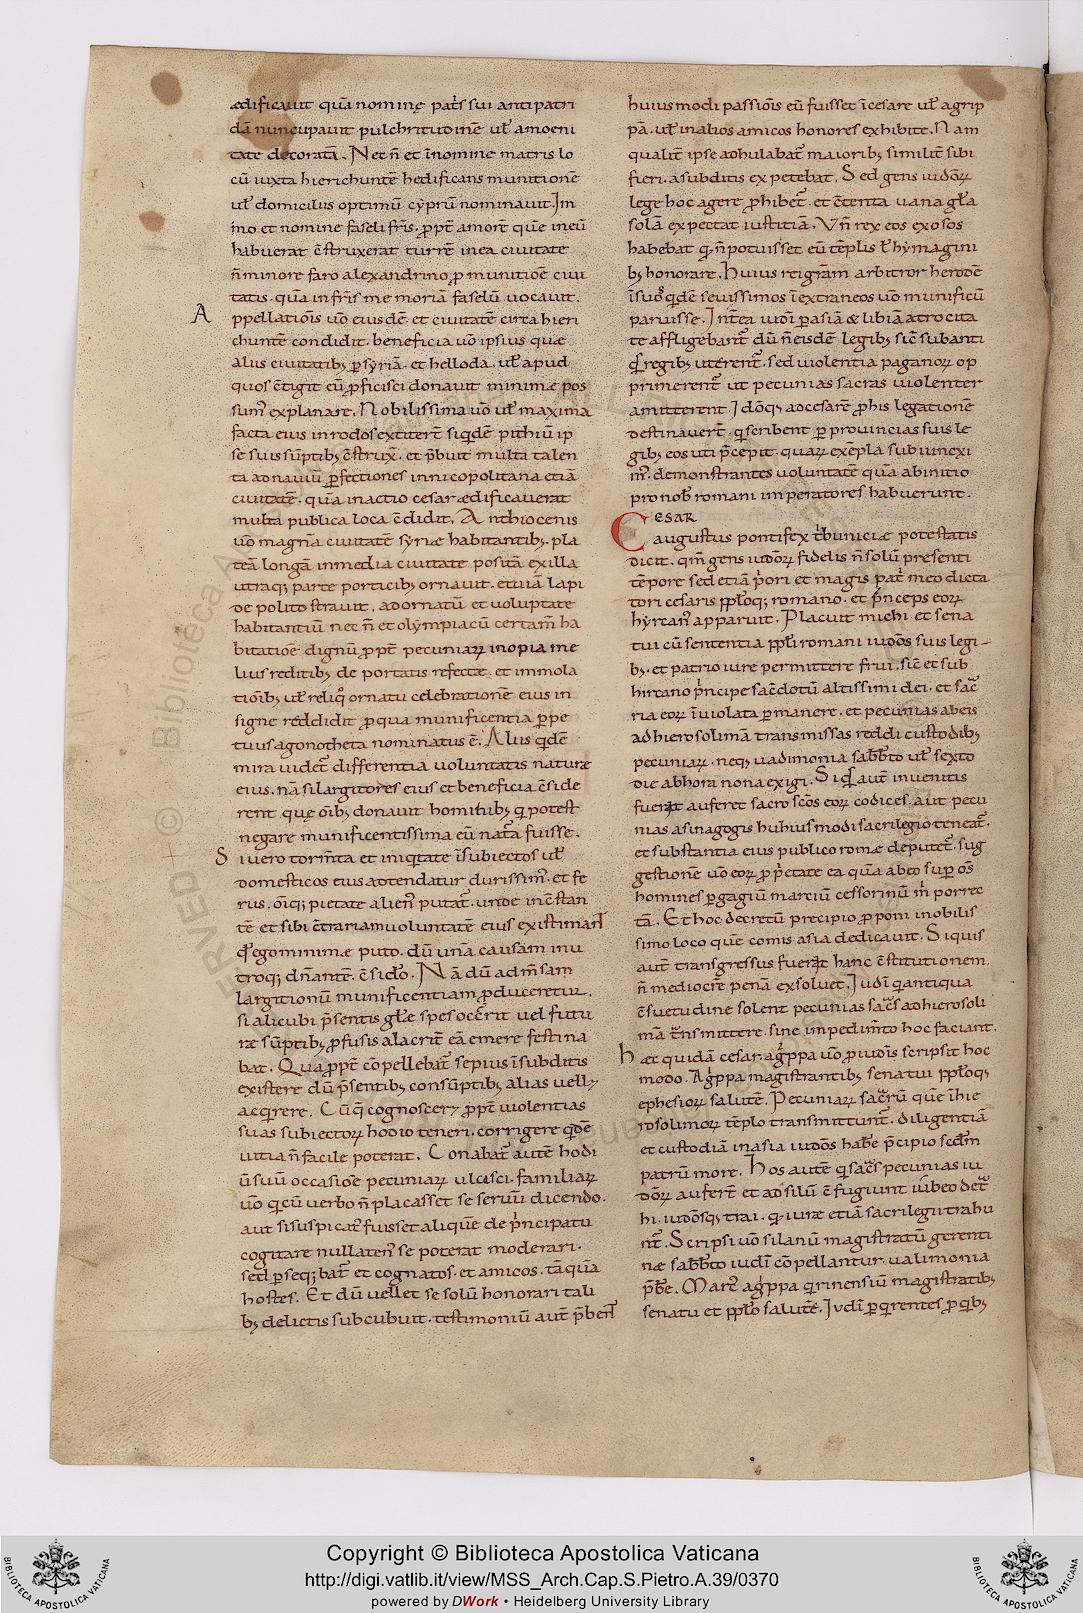 ædificauit quā nominę pat̄s sui antipatri
dā nuncupauit pulchritudinē ut̄ amoeni
tate decoratā. Nec n̄ et ī nomine matris lo
cū iuxta hierichuntē hedificans munitionē
ut̄ domicilus optimū cyprū nominauit. Im
mo et nomine faseli fr̄is. ꝓpt̄ amorē quē in eū
habuerat c̄struxerat turrē in ea ciuitate
n̄ minore faro alexandrino ꝓ munitiōe ciui
tatis. quā in fr̄is memoriā faselū uocauit.
Appellatiōis ūo eiusdē. et ciuitatē circa hieri
chuntē condidit. beneficia ūo ipsius quæ
aliis ciuitatibꝫ ꝑ syriā. et hellada. ut̄ apud
quos c̄tigit eū ꝓficisci donauit minime pos
sum̄ explanare. Nobilissima ūo ut̄ maxima
facta eius in rodos extitert̄ siqdē pithiū ip
se suis sūptibꝫ c̄strux̄. et p̄buit multa talen
ta ad nauiū ꝑfectiones in nicopolitana etiā
ciuitatē. quā in actio cesar ædificauerat
multa publica loca c̄didit. Anthiocenis
ūo magnā ciuitatē syriæ habitantibꝫ. pla
teā longā in media ciuitate positā ex illa
utraqꝫ parte porticibꝫ ornauit. et uiā lapi
de polito strauit. ad ornatū et uoluptate
habitantiū nec n̄ et olympiacū certam̄ ha
bitatiōe dignū ꝓpt̄ pecuniaꝝ inopia me
lius reditibꝫ de portatis refecta. et immola
tiōibꝫ ut̄ reliqͦ ornatu celebrationē eius in
signe reddidit ꝓ qua munificentia ꝑpe
tuus agonotheta nominatus ē. Aliis qdē
mira uidet̄ differentia uoluntatis naturæ
eius. nā si largitores eius et beneficia c̄side
rent que ōibꝫ donauit hominibꝫ q̄ potest
negare munificentissima eū nat̄a fuisse.
Si uero torm̄ta et iniqitate ī subiectos ut̄
domesticos eius adtendatur durissim̄. et fe
rus. ōiqꝫ pietate alien̄ putat̄. unde in c̄stan
tē et sibi c̄trariam uoluntatē eius existimant̄
qd̄ ego minimæ puto. dū unā causam in u
troqꝫ dn̄antē. c̄sido. Nā dū adm̄sam
largitionū munificentiam ꝓduceretur.
si alicubi p̄sentis gl̄æ spes occr̄it uel futu
ræ sūptibꝫ ꝓfusis alacrit̄ eā emere festina
bat. Quapropt̄ cōpellebat̄ sepius ī subditis
existere dū p̄sentibꝫ consūptibꝫ alias uell&
acqirere. Cūq̄ cognoscer& ꝓpt̄ uiolentias
suas subiectoꝝ hodio teneri. corrigere qdē
uitia n̄ facile poterat. Conabat̄ autē hodi
ū suū occasiōe pecuniaꝝ ulcisci. familiaꝝ
ūo q̄ cū uerbo n̄ placasset se seruū dicendo.
aut si suspicat̄ fuisset aliquē de p̄ncipatu
cogitare nullaten̄ se poterat moderari.
sed ꝑseqꝫbat̄ et cognatos. et amicos. tāquā
hostes. Et dū uellet se solū honorari tali
bꝫ delictis subcubuit. testimoniū aut̄ p̄bent̄
huiusmodi passiōis eū fuisset ī cesare ut̄ agrip
pā. ut̄ in alios amicos honores exhibite. Nam
qualit̄ ipse adhulabat̄ maioribꝫ similit̄ sibi
fieri. a subditis expetebat. Sed gens iudōꝝ
lege hoc agere ꝓhibet̄. et c̄tenta uana gl̄a
solā expectat iustitiā. Vn̄ rex eos exosos
habebat q̄ n̄ potuisset eū tēplis t̄ hymagini
bꝫ honorare. Huius reigrām arbitror herodē
ī suos qdē seuissimos ī extraneos ūo munificū
paruisse. Int̄ea iudi ꝑ asiā & libiā atrocita
te affligebant̄ dū n̄ eisdē legibꝫ sic̄ sub anti
qis regibꝫ uterent̄. sed uiolentia paganoꝝ op
primerent̄ ut pecunias sacras uiolenter
amitterent. Idōqꝫ ad cesarē ꝓ his legationē
destinauert̄. q̄ scribent ꝑ prouincias suis le
gibꝫ eos uti p̄cepit. quaꝝ exēpla subiunexi
m̄. demonstrantes uoluntatē quā ab initio
pro nob̄ romani imperatores habuerunt.
Cesar
augustus pontifex t̄buniciæ potestatis
dicit. qm̄ gens iudōꝝ fidelis n̄ solū presenti
tēpore sed etiā p̄ori et magis pat̄ meo dicta
tori cesaris ppl̄oqꝫ romano. et p̄nceps eoꝝ
hyrcan̄ apparuit. Placuit michi et sena
tui cū sententia ppl̄i romani iudōs suis legi-
bꝫ. et patrio iure permittere frui. sic̄ et sub
hircano p̄ncipe sac̄dotū altissimi dei. et sac̄
ria eoꝝ ī uiolata ꝑmanere. et pecunias ab eis
ad hierosolimā transmissas reddi custodibꝫ
pecuniaꝝ. neqꝫ uadimonia sabb̄to ut̄ sexto
die ab hora nona exigi. Siq̄s aut̄ inuentus
fuerat auferet sacroscōs eoꝝ codices. aut pecu
nias a sinagogis huhiusmodi sacrilegio teneat̄.
et substantia eius publico romæ deputet̄. sug
gestionē ūo eoꝝ ꝓ p̄etate ea quā abeo suꝑ ōs
homines ꝑ gagiū marciū cessorinū m̄ porrec
tā. Et hoc decretū precipio ꝓponi in obilis
simo loco quē comis asia dedicauit. Siquis
aut̄ transgressus fuerat hanc c̄stitutionem.
n̄ mediocrē penā exsoluet. Iudi q̄ antiqua
c̄suetudine solent pecunias sac̄s ad hierosoli
mā t̄nsmittere. sine impedim̄to hoc faciant.
hæc quidā cesar. ag̈ppa ūo ꝓ iudōis scripsit hoc
modo. Agppa magistrantibꝫ senatui ppl̄oqꝫ
ephesioꝝ salutē. Pecuniaꝝ sac̄rū quē ī hie
rosolimoꝝ tēplo transmittunt̄. diligentiā
et custodiā in asia iudōs habe p̄cipio sedm̄
patrū more. Hos autē q̄ sac̄s pecunias iu
dōꝝ auferr̄t et ad silū c̄fugiunt iubeo det̄
hi. iudōsqꝫ trai. q̄ iuræ etiā sacrilegii trahu
nt̄. Scripsi ūo silanū magistratū gerenti
næ sabb̄to iudi cōpellantur. ualimonia
p̄be. Marc̄ agppa q̄rinensiū magistratibꝫ
senatu et ppl̄o salutē. Iudi ꝑ qirentes ꝓ qibꝫ
Copyright © Biblioteca Apostolica Vaticana
http://digi.vatlib.it/view/MSS_Arch.Cap.S.Pietro.A.39/0370
powered by DWork • Heidelberg University Library
BIBLIOTECA APOSTOLICA VATICANA
BIBLIOTECA APOSTOLICA VATICANA